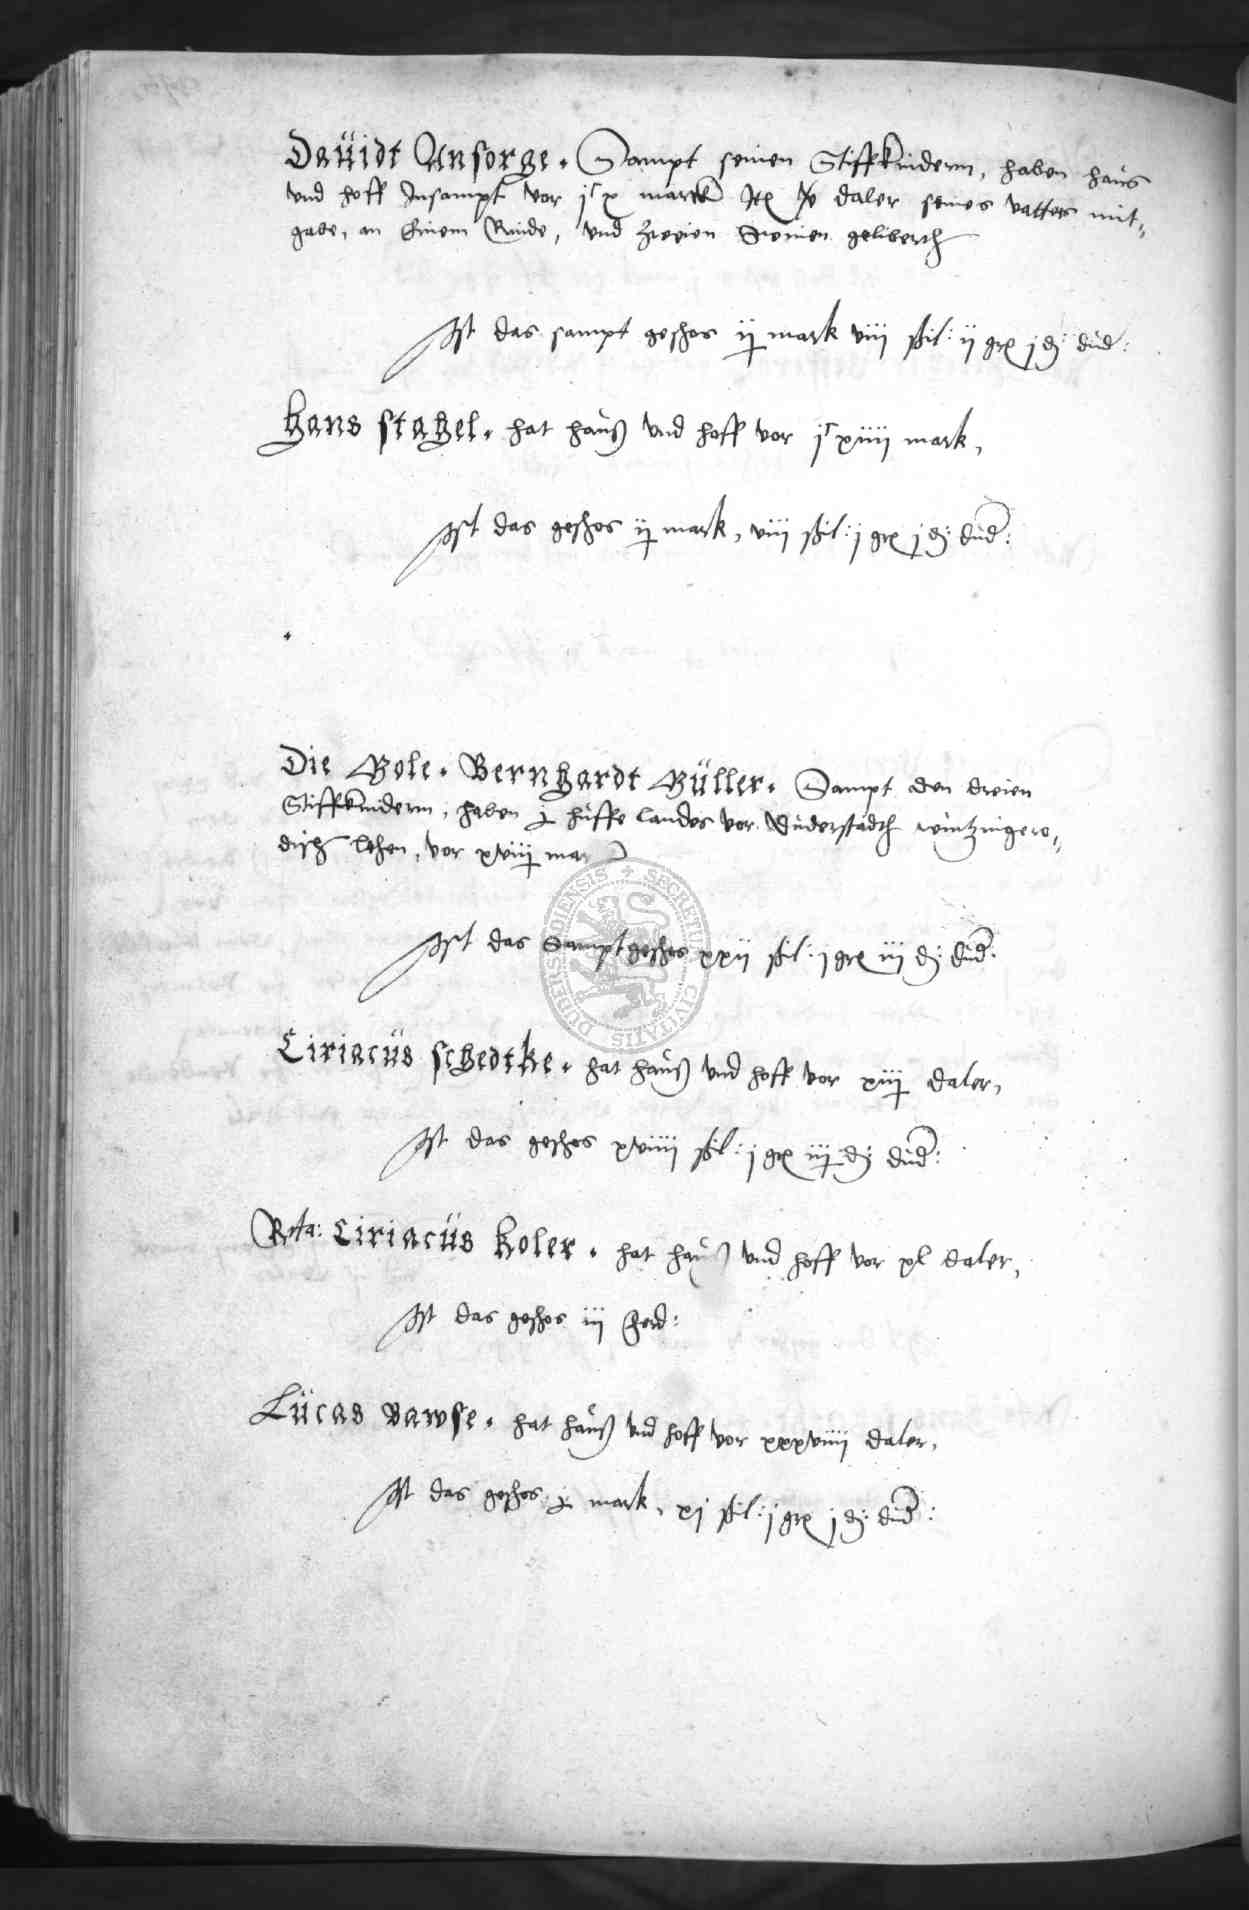 Dauidt Unsorge. Sampt seinen Stiffkindernn, haben haus
und hoff Insampt vor jc x marck Jtem daler seines vatters mit-
gabe, an Einem Rinde, und zweien Sweinen geliberth
Ist das sampt geschos ij mark viii ßil: ii gr j d: dud:
Hans stahel. hat hauß und hoff vor jc xiiii mark,
Ist das geschos ij mark, viii ßil: j gr j d: dud:
Die Bole. Bernhardt Büller. Sampt den dreien
Stiffkindernn, haben huffe landes vor Duderstadth wintzingero-
disch lehen, vor xviii mar
Ist das Samptgeschos xxii ßil: j gr iii d: dud:
Ciriacüs schedtke. hat hauß und hoff vor xiii daler,
Ist das geschos xviiii ßil: j gr iii d: dud:
Rta: Ciriacüs Koler. hat hauß und hoff vor xl daler,
Ist das geschos iii ferd:
Lücas Bawse. hat hauß und hoff vor xxxviiii daler,
Ist das geschos mark, xj ßil: j gr j d: dud:
SECRETUM CIVITATIS DUDERSTADIENSIS